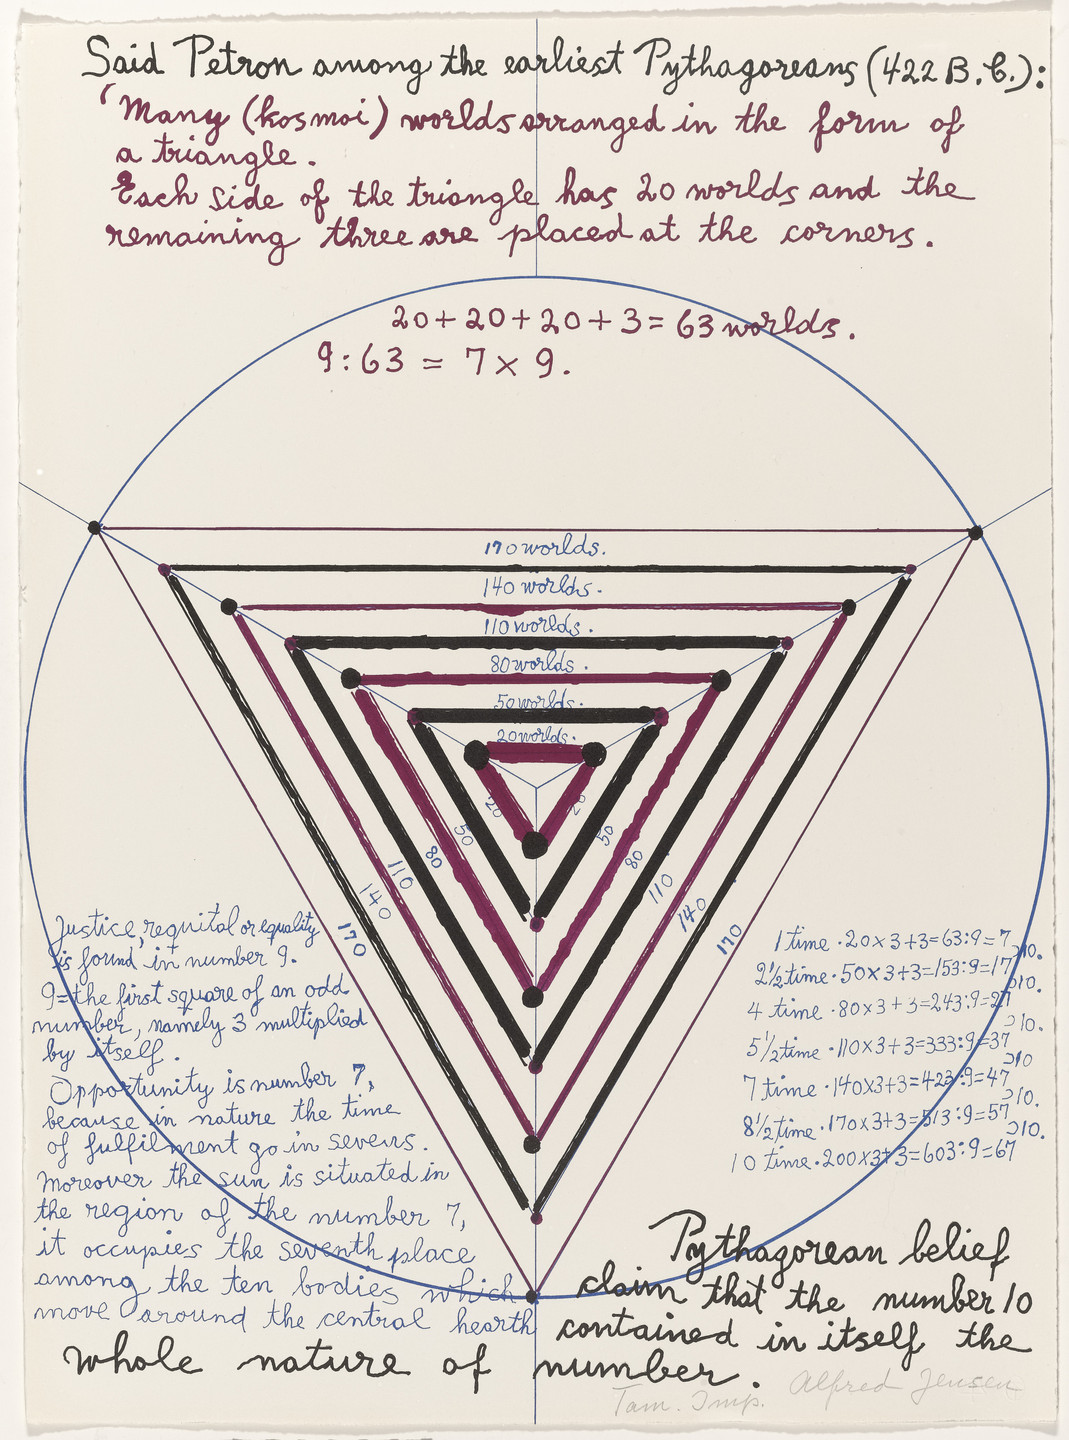 Said Petron among the earliest Pythagoreans (422 B.C.):
'Many (kosmoi) worlds arranged in the form of
a triangle.
Each side of the triangle has 20 worlds and the
remaining three are placed at the corners.
20+20+20+3=63 worlds.
9:63 = 7 x 9.
170 worlds.
140 worlds.
110 worlds.
80 worlds.
50 worlds.
20 worlds.
20
20
50
50
80
80
110
110
140
140
170
170
Justice, requital or equality
is found in number 9.
9=the first square of an odd
number, namely 3 multiplied
by itself.
Opportunity is number 7,
because in nature the time
of fulfilment go in sevens.
Moreover the sun is situated in
the region of the number 7,
it occupies the seventh place
among the ten bodies which
move around the central hearth
1 time · 20x3+3=63:9=7
>10.
2½ time · 50x3+3=153:9=17
>10.
4 time · 80x3+3=243:9=27
>10.
5½ time · 110x3+3=333:9=37
>10
7 time · 140x3+3=423:9=47
>10.
8½ time · 170x3+3=513:9=57
>10.
10 time · 200x3+3=603:9=67
Pythagorean belief
claim that the number 10
contained in itself the
whole nature of number.
Tam. Imp. Alfred Jensen